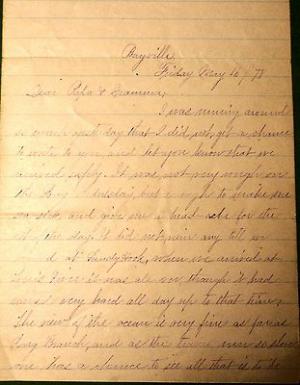 Bayville
Friday May 10 / 78
Dear Papa & Mamma,
I was running around
so much yesterday that I did not get a chance
to write to you and let you know that we
arrived safely. It was not very rough on
the Bay Tuesday, but enough to make me
sick, and give me a head ache for the
of the day. It did not rain any till we
d at Sandy Hook, when we arrived at
River it was all over, though it had
very hard all day up to that time.
The view of the ocean is very fine as far as
Long Branch, and as the trains run so slow
one has a chance to see all that is to be